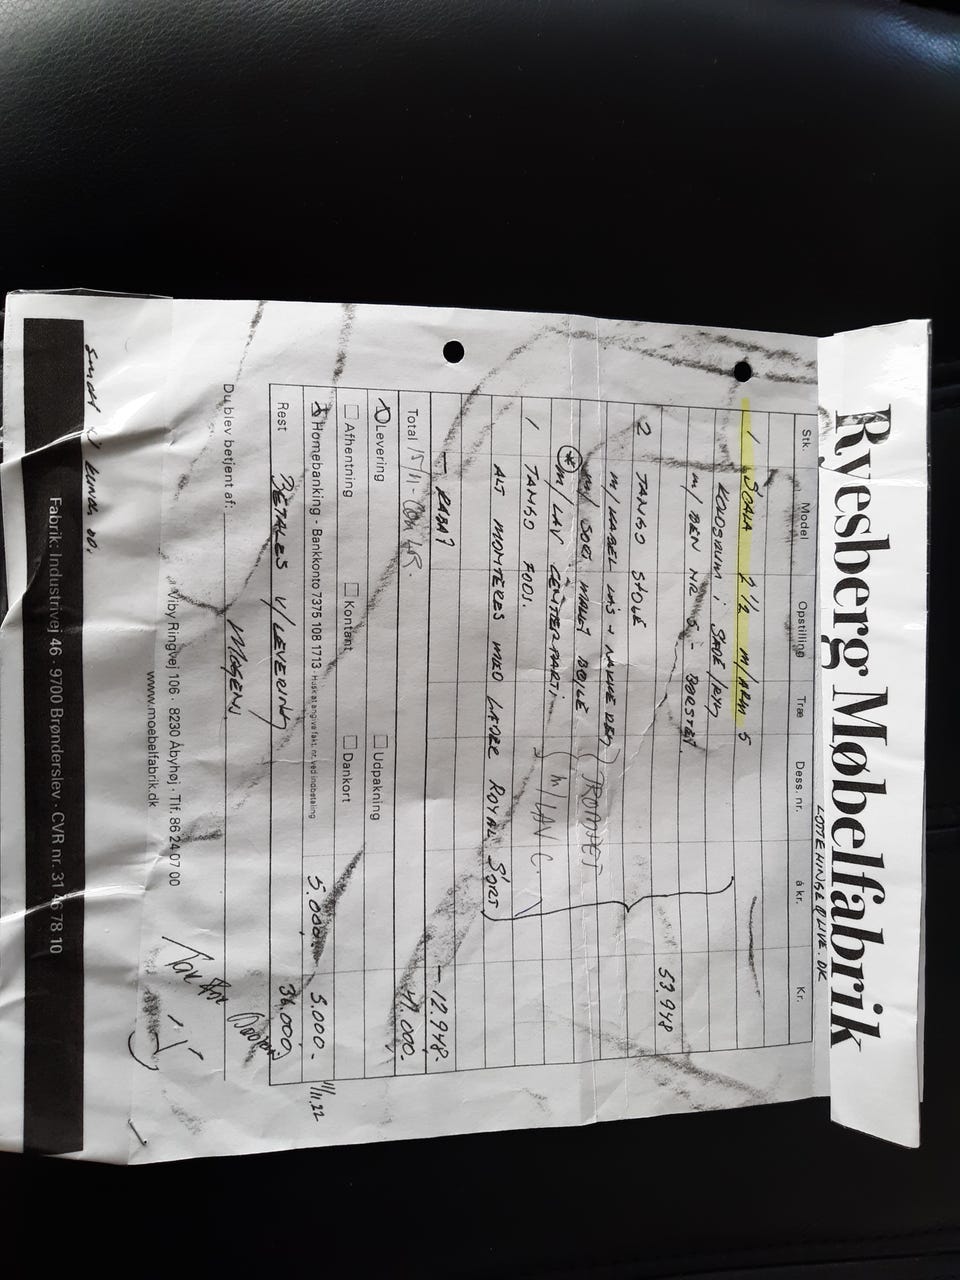 Ryesberg Møbelfabrik
LOTTEHINGE@LIVE.DK
Stk. Model Opstilling Træ Dess. nr. à kr. Kr.
1 SCALA 2 1/2 m/ARM 5
KOLDSKUM i SÆDE/RYG
m/ BEN NR 5 - BØRSTET.
2 TANGO STOLE 53.948
m/ GABEL LÅS + NAKKE TROMPET
m/ SORT MALET BØJLE
* m/ LAV CENTERPARTI. m/LAV C.
1 TANGO FOD.
ALT MONTERES MED LÆDER ROYAL SORT)
- RABAT - 12.948.-
Total 41.000.
Levering Udpakning
Afhentning Kontant Dankort
Homebanking - Bankkonto 7375 108 1713 - Husk at angive fakt. nr. ved indbetaling 5.000.- 5.000.- 1/11.22
Rest BETALES V/LEVERING 36.000,-
Du blev betjent af: MOGENS
Tak for
Viby Ringvej 106 · 8230 Åbyhøj · Tlf. 86 24 07 00
www.moebelfabrik.dk
Fabrik: Industrivej 46 · 9700 Brønderslev · CVR nr. 31 46 78 10